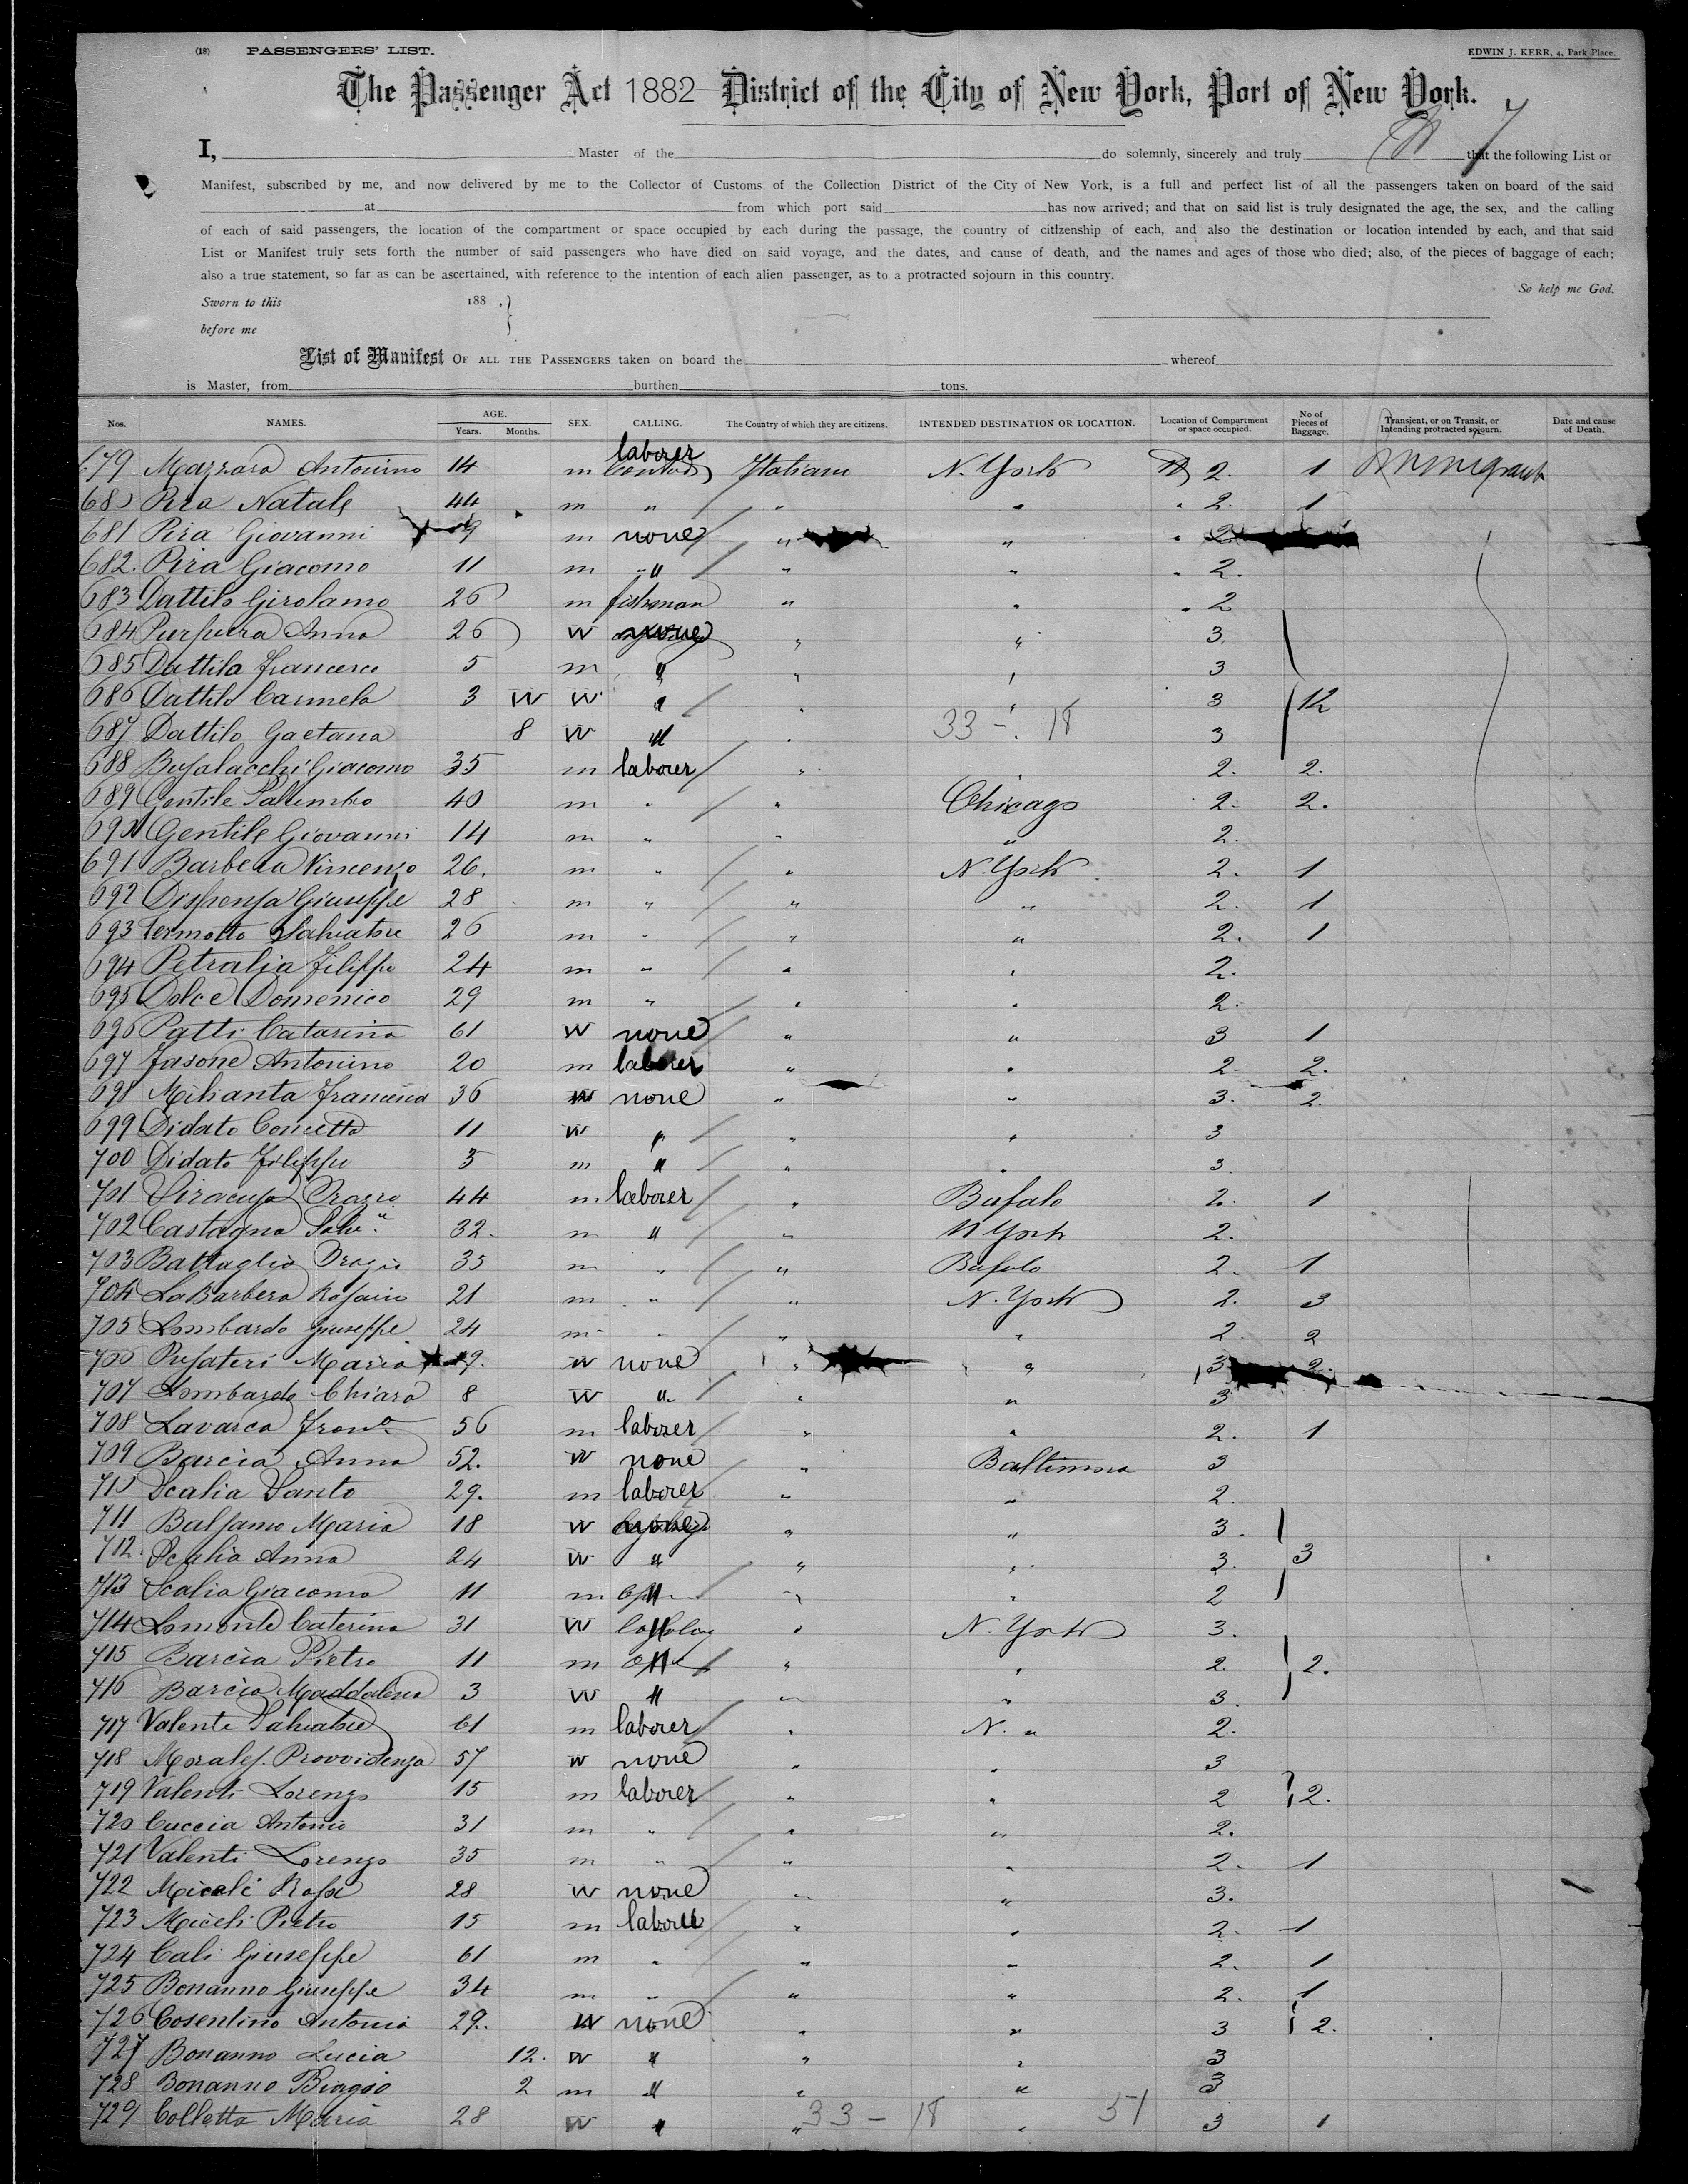 (18) PASSENGERS' LIST. EDWIN J. KERR, 4, Park Place.
The Passenger Act 1882 District of the City of New York, Port of New York.
I, Master of the do solemnly, sincerely and truly that the following List or
Manifest, subscribed by me, and now delivered by me to the Collector of Customs of the Collection District of the City of New York, is a full and perfect list of all the passengers taken on board of the said
at from which port said has now arrived; and that on said list is truly designated the age, the sex, and the calling
of each of said passengers, the location of the compartment or space occupied by each during the passage, the country of citizenship of each, and also the destination or location intended by each, and that said
List or Manifest truly sets forth the number of said passengers who have died on said voyage, and the dates, and cause of death, and the names and ages of those who died; also, of the pieces of baggage of each;
also a true statement, so far as can be ascertained, with reference to the intention of each alien passenger, as to a protracted sojourn in this country.
So help me God.
Sworn to this 188 .
before me
List of Manifest OF ALL THE PASSENGERS taken on board the whereof
is Master, from burthen tons.
Nos. NAMES. AGE. Years. Months. SEX. CALLING. The Country of which they are citizens. INTENDED DESTINATION OR LOCATION. Location of Compartment or space occupied. No of Pieces of Baggage. Transient, or on Transit, or Intending protracted sojourn. Date and cause of Death.
679 Mazzara Antonino 14 m laborer Italian N. York 2. 1
680 Pira Natale 44 m " " " 2. 1
681 Pira Giovanni 9 m none " " 2.
682. Pira Giacomo 11 m " " " 2.
683 Dattilo Girolamo 26 m fishman " " 2
684 Purpura Anna 26 W none " " 3.
685 Dattilo Francesco 5 m " " " 3
686 Dattilo Carmela 3 W W " " " 3 12
687 Dattilo Gaetana 8 W " " 33 - 18 3
688 Bufalacchi Giacomo 35 m laborer " " 2. 2.
689 Gentile 40 m " " Chicago 2. 2.
690 Gentile Giovanni 14 m " " " 2.
691 Barbera Vincenzo 26. m " " N. York 2. 1
692 Dispensa Giuseppe 28 m " " " 2. 1
693 Termotto Salvatore 26 m " " " 2. 1
694 Petralia Filippo 24 m " " " 2.
695 Dolce Domenico 29 m " " " 2.
696 Patti Catarina 61 W none " " 3 1
697 Fasone Antonino 20 m laborer " " 2 2.
698 Milianta Francesca 36 W none " " 3. 2.
699 Didato Concetta 11 W " " " 3
700 Didato Filippo 5 m " " " 3.
701 Siracusa 44 m laborer " Bufalo 2. 1
702 Castagna Salv. 32. m " " N York 2.
703 Battaglia 35 m " " Bufalo 2. 1
704 La Barbera Rosario 21 m " " N. York 2. 3
705 Lombardo Giuseppe 24 m " " " 2. 2
706 Pusateri Maria 19. W none " " 3 2.
707 Lombardo Chiara 8 W " " " 3
708 Lavarca 56 m laborer " " 2. 1
709 Barcia Anna 52. W none " Baltimora 3
710 Scalia Santo 29. m laborer " " 2.
711 Balsamo Maria 18 W none " " 3.
712. Scalia Anna 24 W " " " 3. 3
713 Scalia Giacomo 11 m " " " 2
714 Lomonte Caterina 31 W " " N. York 3.
715 Barcia Pietro 11 m " " " 2. 2.
716 Barcia Maddalena 3 W " " " 3.
717 Valenti Salvatore 61 m laborer " N. " 2.
718 Morales Provvidenza 57 W none " " 3
719 Valenti Lorenzo 15 m laborer " " 2 2.
720 Cuccia Antonio 31 m " " " 2.
721 Valenti Lorenzo 35 m " " " 2. 1
722 Miceli Rosa 28 W none " " 3.
723 Miceli Pietro 15 m laborer " " 2. 1
724 Cali Giuseppe 61 m " " " 2. 1
725 Bonanno Giuseppe 34 m " " " 2. 1
726 Cosentino Antonia 29. W none " " 3 2.
727 Bonanno Lucia 12. W " " " 3
728 Bonanno Biagio 2 m " " " 3
729 Colletta Maria 28 W " " 33 - 18 " 51 3 1